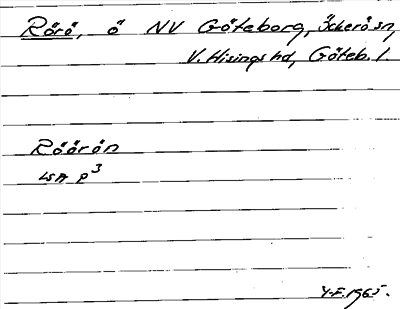 Rörö, ö NV Göteborg, Öckerö sn,
V. Hisings hd, Göteb. l.
Röörön
LSA P3
Y.F. 1965.